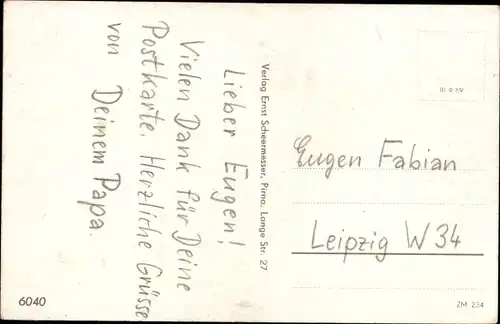 Lieber Eugen!
Vielen Dank für Deine
Postkarte. Herzliche Grüsse
von Deinem Papa.
Verlag Ernst Scheermesser, Pirna, Lange Str. 27
III 9 29
Eugen Fabian
Leipzig W 34
6040
ZM 234